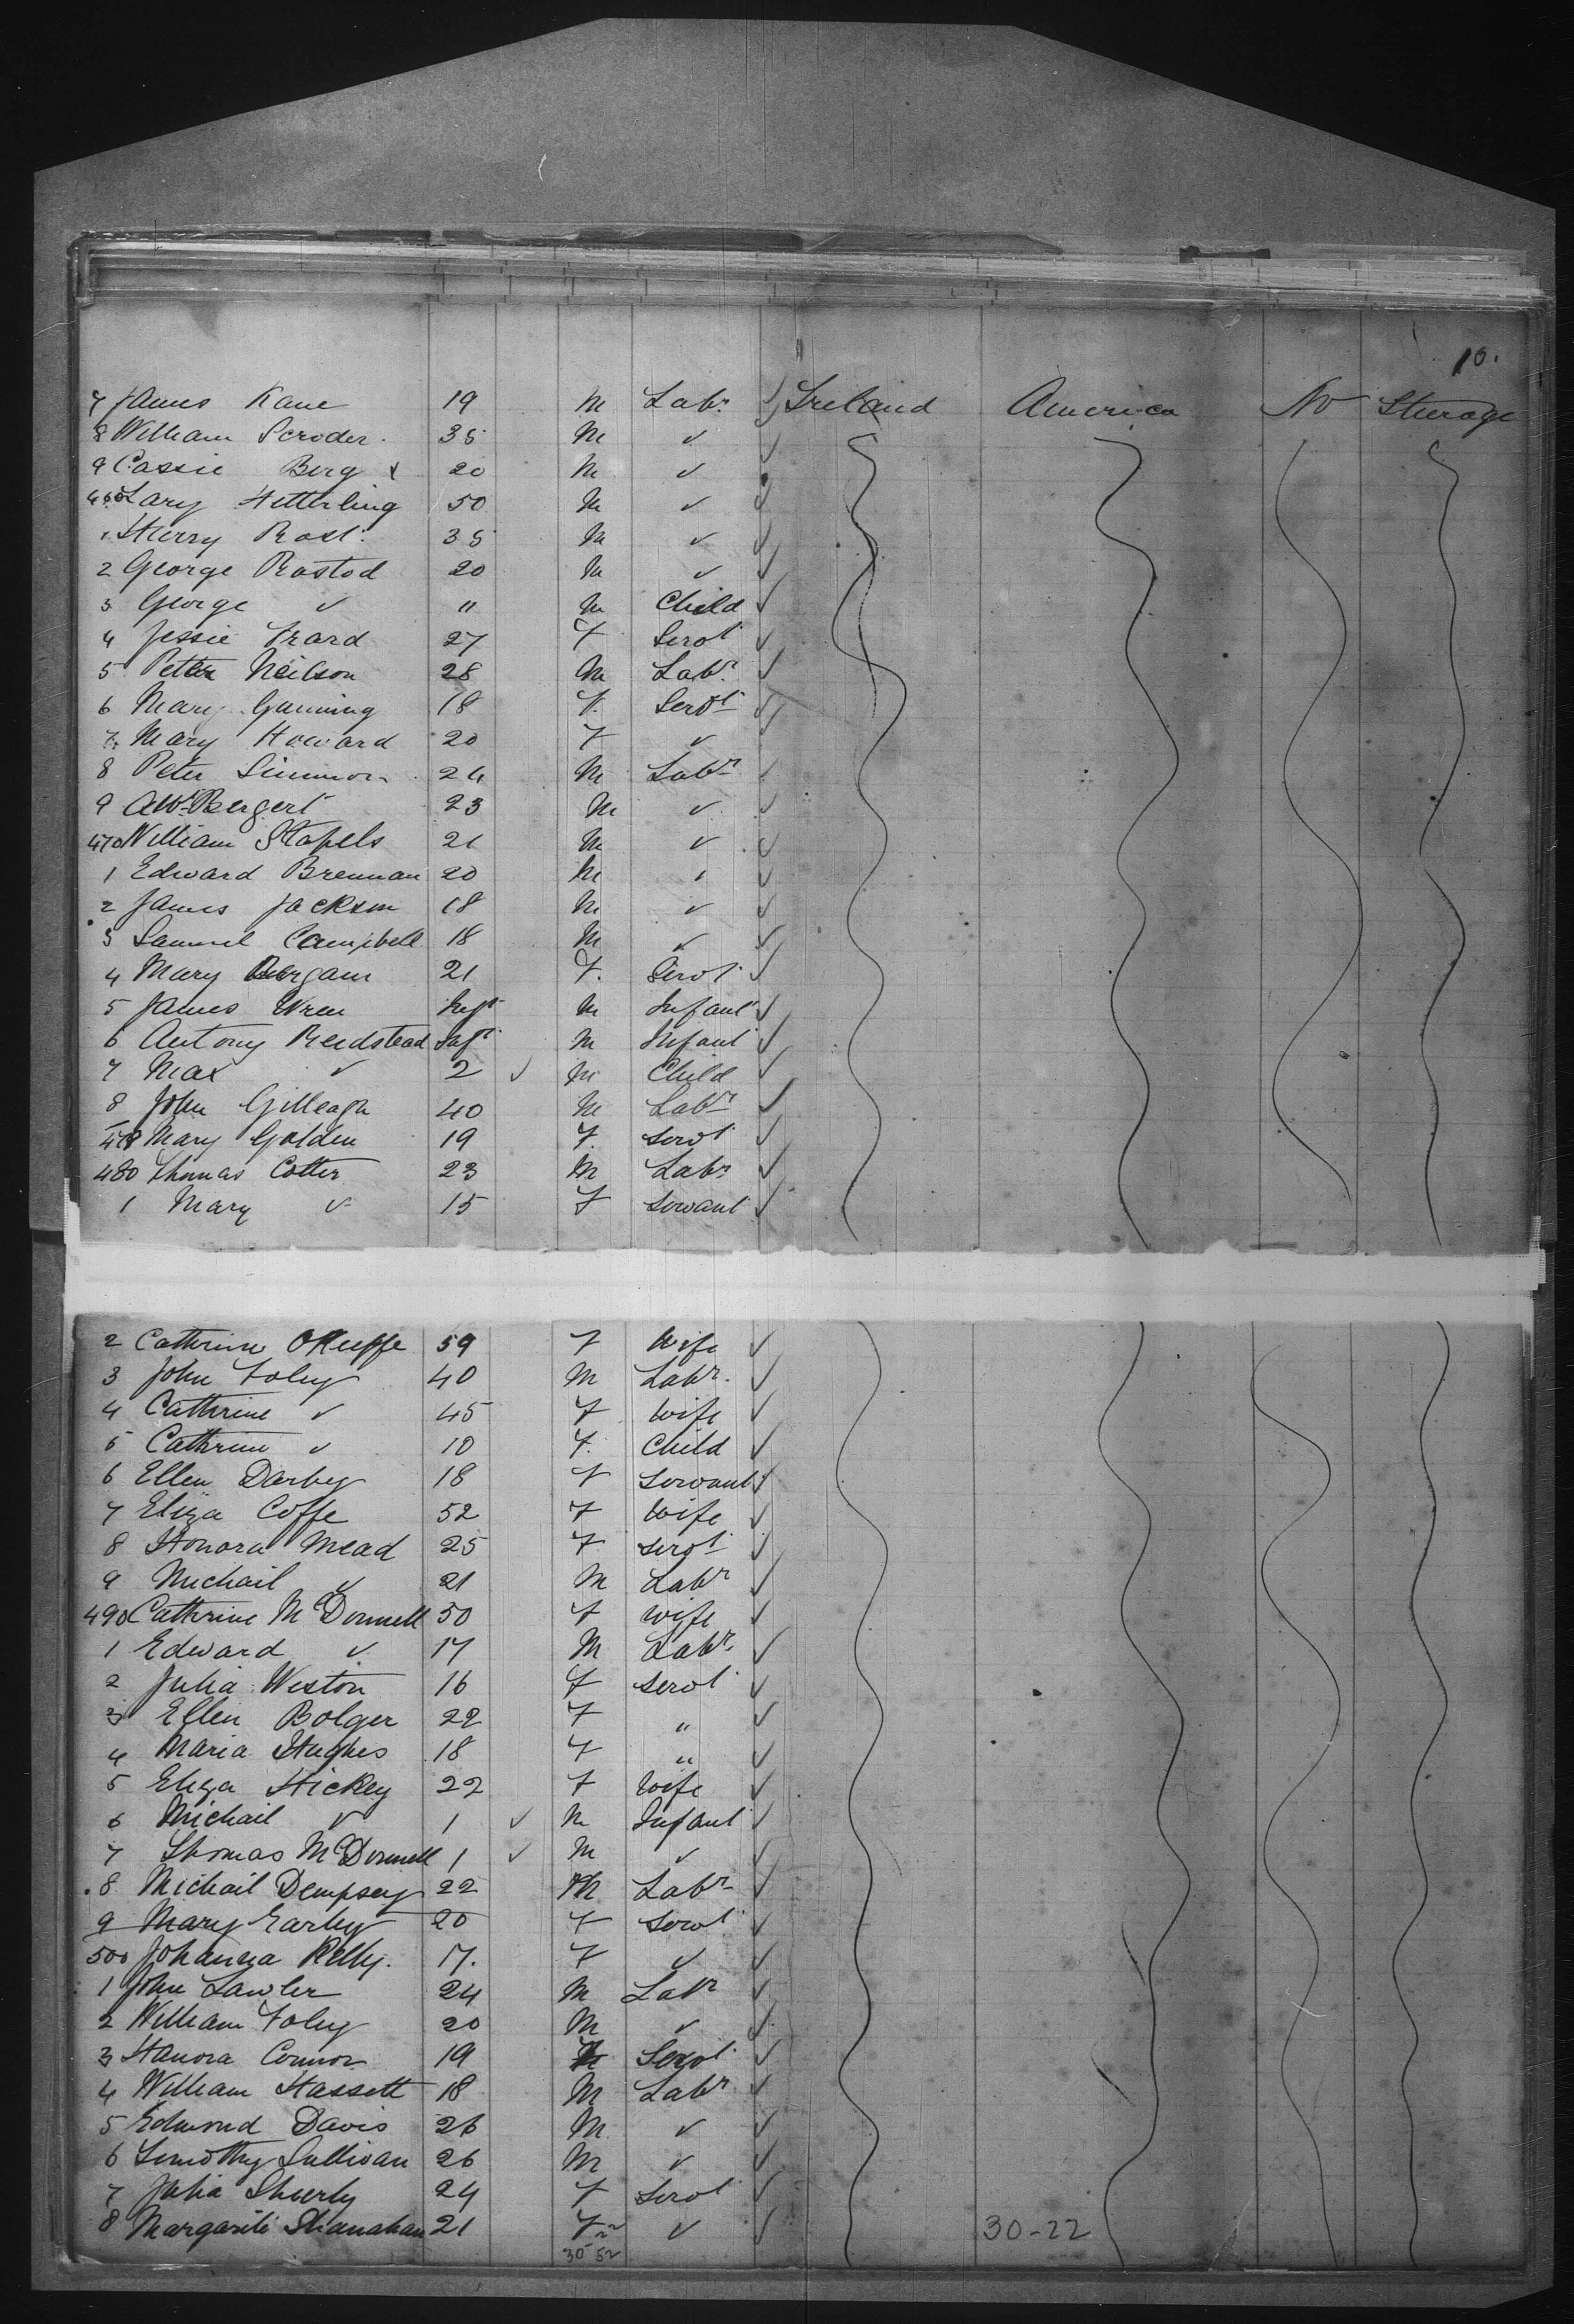 10.
7 James Kane 19 M Labr. ✓ Ireland America No Steerage
8 William Scroder. 35 M ✓ ✓
9 Cassie Berg x 20 M ✓ ✓
460 Lary Hetterling 50 M ✓ ✓
1 Herry Rost. 35 M ✓ ✓
2 George Rostod 20 M ✓ ✓
3 George ✓ 11 M Child ✓
4 Jessie 27 F Servt ✓
5 Petter Neilson 28 M Labr. ✓
6 Mary Gunning 18 F. Servt ✓
7. Mary Howard 20 F ✓ ✓
8 Peter Simmon 24 M Labr ✓
9 AW. Bergert 23 M ✓ ✓
470 William Stapels 21 M ✓ ✓
1 Edward Brennan 20 M ✓ ✓
2 James Jackson 18 M ✓ ✓
3 Samuel Campbell 18 M ✓ ✓
4 Mary 21 F. Servt ✓
5 James Wren Inft M Infant ✓
6 Antony Reedstead Inft M Infant ✓
7 Max ✓ 2 ✓ M Child ✓
8 John Gilleagh 40 M Labr ✓
Mary Golden 19 F. Servt ✓
480 Thomas Cotter 23 M Labr ✓
1 Mary ✓ 15 F Servant ✓
2 Cathrine OKeeffe 59 F Wife ✓
3 John Foley 40 M Labr. ✓
4 Cathrine ✓ 45 F Wife ✓
5 Cathrine ✓ 10 F. Child ✓
6 Ellen Darby 18 F Servant ✓
7 Eliza Coffe 52 F Wife ✓
8 Honora Mead 25 F Servt ✓
9 Michail ✓ 21 M Labr ✓
490 Cathrine McDonnell 50 F Wife ✓
1 Edward ✓ 17 M Labr. ✓
2 Julia Weston 16 F Servt ✓
3 Ellen Bolger 22 F " ✓
4 Maria Hughes 18 F " ✓
5 Eliza Hickey 22 F Wife ✓
6 Michail ✓ 1 ✓ M Infant ✓
7 Thomas McDonnell 1 ✓ M ✓ ✓
8 Michail Dempsey 22 M Labr ✓
9 Mary Earley 20 F Servt ✓
500 Johanna Kelly. 17. F ✓ ✓
1 John Lawler 24 M Labr ✓
2 William Foley 20 M ✓ ✓
3 Hanora Connor 19 F Servt ✓
4 William Hassett 18 M Labr ✓
5 Edmond Davis 26 M ✓ ✓
6 Timothy Sullivan 26 M ✓ ✓
7 Julia Sheerly 24 F Servt ✓
8 Margarite Shanahan 21 F ✓ ✓ 30-22
30 52